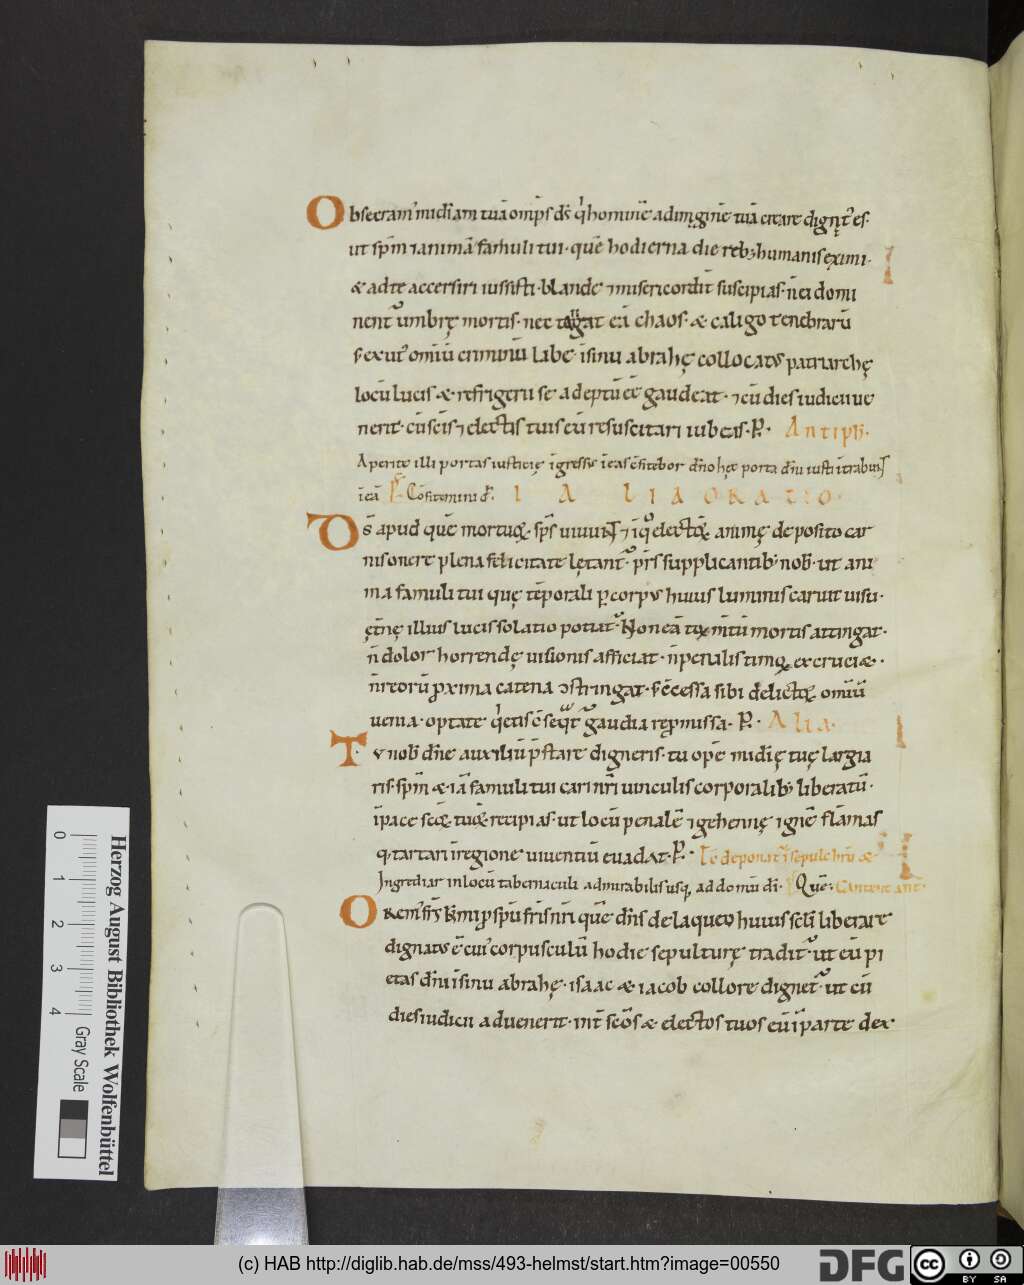 Obsecram' mīdiam tuā omīps ds̄ q'hominē adimaginē tuā creare dignat' es·
ut sp̄m ⁊animā famuli tui· quē hodierna die reb; humanis eximi·
& adte accersiri iussisti· blande ⁊misericordit̄ suscipias· n̄ei domi
nent' umbrę mortis· nec tegat eū chaos· & caligo tenebrarū
s; exut' omiū criminū labe· īsinu abrahę collocatus patriarchę
locū lucis & refrigerii se adeptū eē gaudeat· ⁊cū dies iudicii ue
nerit· cū scīs ⁊ electis tuis eū resuscitari iubeis· P̄· Antiph̄·
Aperite illi portas iusticię īgressus īeas c̄fitebor dn̄o hęc porta dn̄i iusti ītrabunt
īeā Ps Cōfitemini d̄· I ALIA ORATIO·
Ds̄ apud quē mortuoꝝ· sps̄ uiuunt ⁊īq'electoꝝ animę deposito car
nis onere plena felicitate lętant'· p̄r̄s supplicantib; nob̄· ut ani
ma famuli tui quę tēporali p̄ corpus huius luminis caruit uisu·
ęt̄nę illius lucis solatio potiat'· Non eā tormtū mortis attingat·
n̄ dolor horrendę uisionis afficiat· n̄ penalis timor excruciæ·
n̄ reorū proxima catena ↄstringat· s; c̄cessa sibi delictoꝝ omiū
uenia· optate q'etis c̄seqat' gaudia repmissa· P̄· Alia·
Tu nob̄ dn̄e auxiliū p̄stare digneris· tu opē mīdię tuę largia
ris· sp̄m &iā famuli tui carī nr̄i uinculis corporalib; liberatū·
īpace scōꝝ· tuoꝝ recipias· ut locū penalē ⁊gehennę ⁊ignē flāmas
q; tartari īregione uiuentiū euadat· P̄· Tc̄ deponat' īsepulchrū &
Ingrediar inlocū tabernaculi admirabilis usq; ad domū di̅· Ps Quē; Cantent ant·
Orem' fr̄s k̄mi p spū fr̄is nr̄i quē dn̄s de laqueo huius sc̄li liberare
dignatus ē cui' corpusculū hodie sepulturę tradit'· ut eū pi
etas dn̄i īsinu abrahę· isaac & iacob collore dignet'· ut cū
dies iudicii aduenerit· int̄ scōs & electos tuos eū īparte dex
0 1 2 3 4
Gray Scale
Herzog August Bibliothek Wolfenbüttel
(c) HAB http://diglib.hab.de/mss/493-helmst/start.htm?image=00550
DFG
cc BY SA